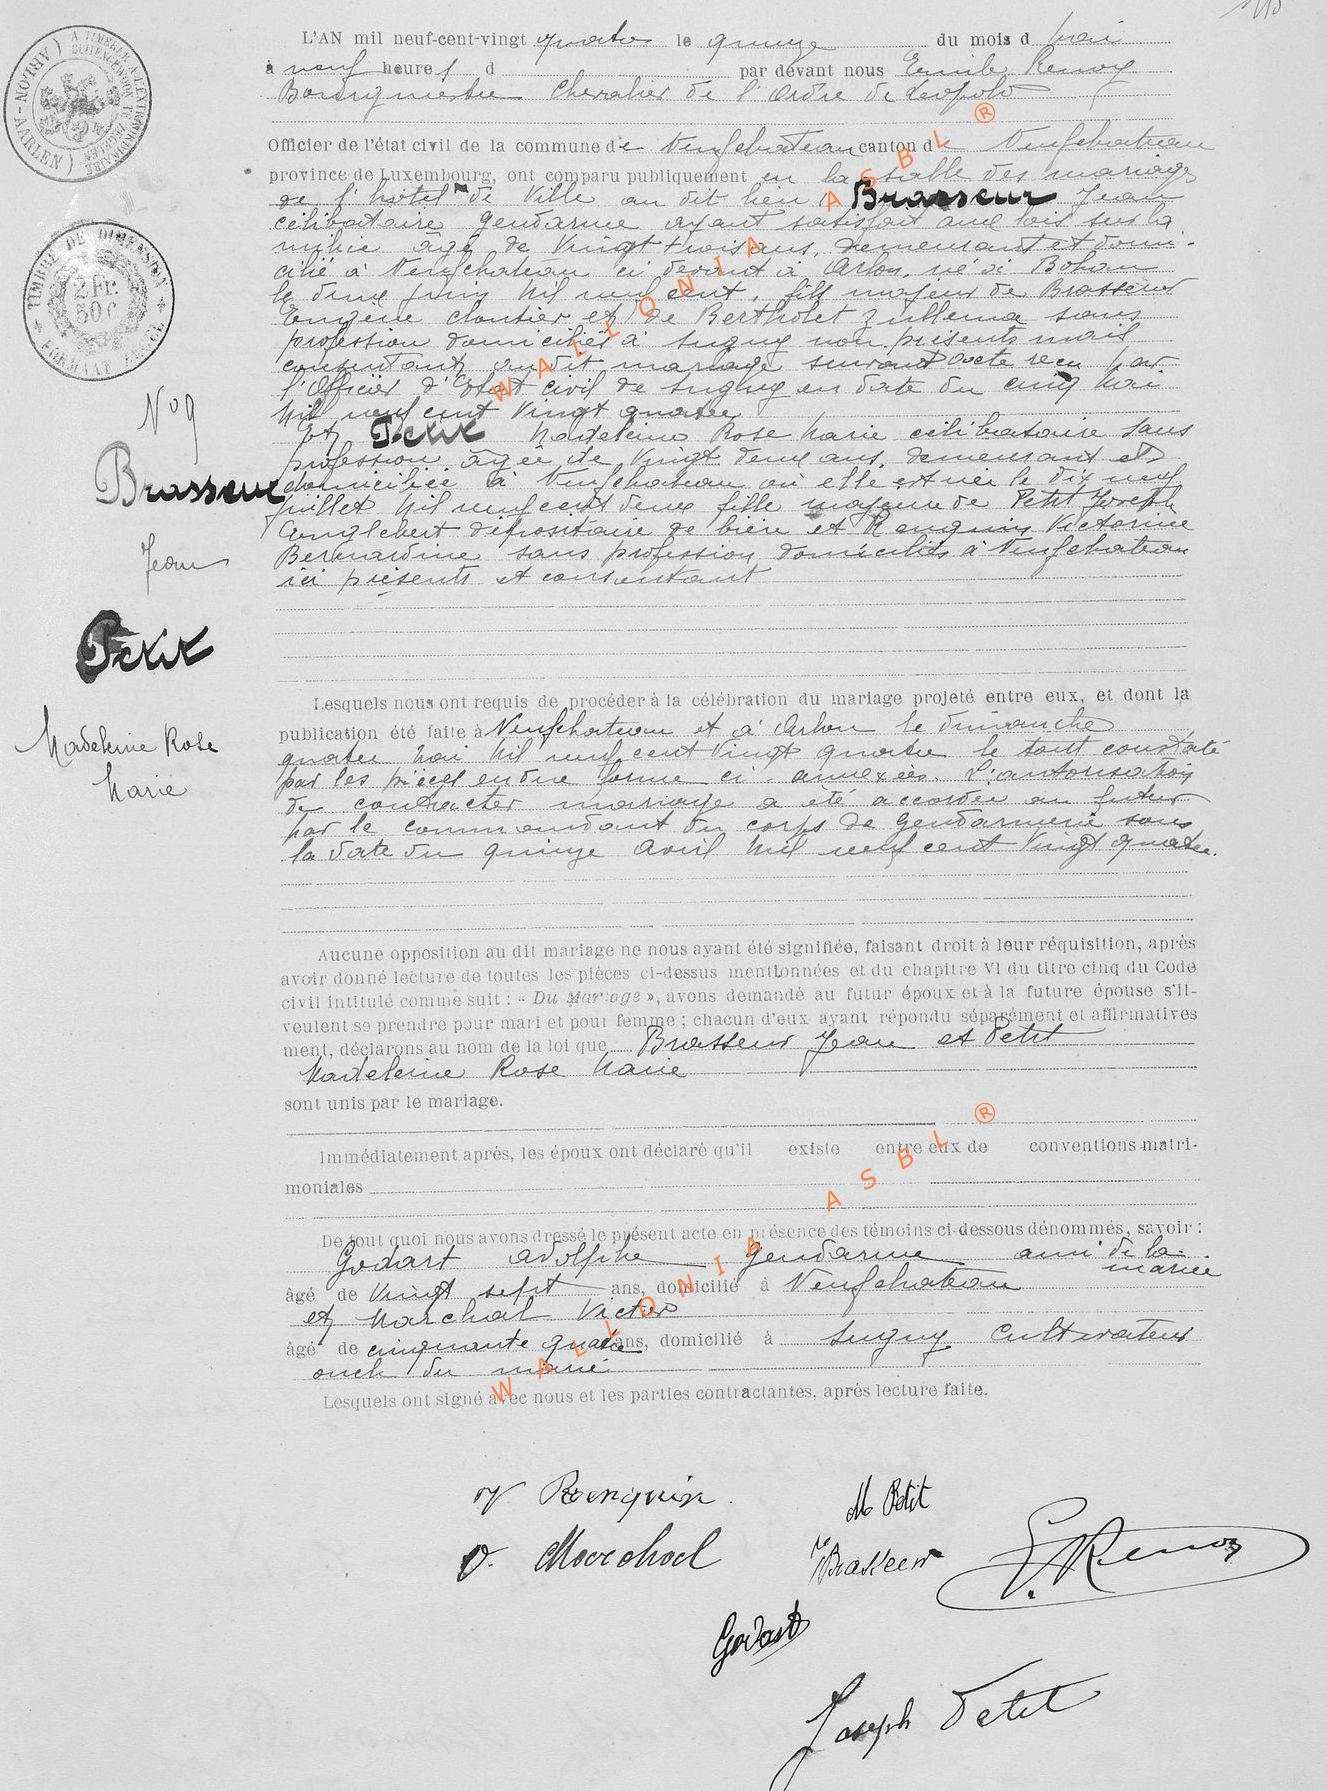 L'AN mil neuf-cent-vingt quatre le quinze du mois d mai
à neuf heures d par devant nous Emile Renoy
Bourgmestre Chevalier de l'Ordre de Léopold
Officier de l'état civil de la commune de Neufchateau canton de Neufchateau
province de Luxembourg, ont comparu publiquement en la salle des mariages
de l'hôtel de Ville au dit lieu Brasseur Jean
célibataire gendarme ayant satisfait aux lois sur la
milice agé de vingt trois ans, demeurant et domi-
cilié à Neufchateau ci devant à Arlon, né à Bohan
le deux juin mil neuf cent, fils majeur de Brasseur
Eugène cloutier et de Bertholet Zullema sans
profession domiciliés à Sugny non présents mais
consentant au dit mariage suivant acte reçu par
l'Officier d'Etat civil de Sugny en date du cinq mai
mil neuf cent vingt quatre
et Petit Madeleine Rose Marie célibataire sans
profession agée de vingt deux ans, demeurant et
domiciliée à Neufchateau où elle est née le dix neuf
juillet mil neuf cent deux fille majeure de Petit Joseph
Englebert dépositaire de bière et Renquin Victorine
Bernardine sans profession domiciliés à Neufchateau
ici présents et consentant
N° 9
Brasseur
Jean
Petit
Madeleine Rose
Marie
Lesquels nous ont requis de procéder à la célébration du mariage projeté entre eux, et dont la
publication été faite à Neufchateau et à Arlon le dimanche
quatre mai mil neuf cent vingt quatre le tout constaté
par les pièces en due forme ci-annexées. L'autorisation
de contracter mariage a été accordée au futur
par le commandant du corps de gendarmerie sous
la date du quinze avril mil neuf cent vingt quatre.
Aucune opposition au dit mariage ne nous ayant été signifiée, faisant droit à leur réquisition, après
avoir donné lecture de toutes les pièces ci-dessus mentionnées et du chapitre VI du titre cinq du Code
civil intitulé comme suit : « Du Mariage », avons demandé au futur époux et à la future épouse s'il-
veulent se prendre pour mari et pour femme ; chacun d'eux ayant répondu séparément et affirmatives
ment, déclarons au nom de la loi que Brasseur Jean et Petit
Madeleine Rose Marie
sont unis par le mariage.
Immédiatement après, les époux ont déclaré qu'il existe entre eux de conventions matri-
moniales
De tout quoi nous avons dressé le présent acte en présence des témoins ci-dessous dénommés, savoir :
Godart Adolphe gendarme ami de la mariée
âgé de vingt sept ans, domicilié à Neufchateau
et Marchal Victor
âgé de cinquante quatre ans, domicilié à Sugny cultivateur
oncle du marié
Lesquels ont signé avec nous et les parties contractantes, après lecture faite.
V Renquin.
M Petit
V. Marchal
Brasseur
E. Renoy
Godart
Joseph Petit
TIMBRE DE DIMENSION
2 Fr.
50 c
(ARLON-NOTRA)
(AARLEN)
WALLONIA ASBL ®
WALLONIA ASBL ®